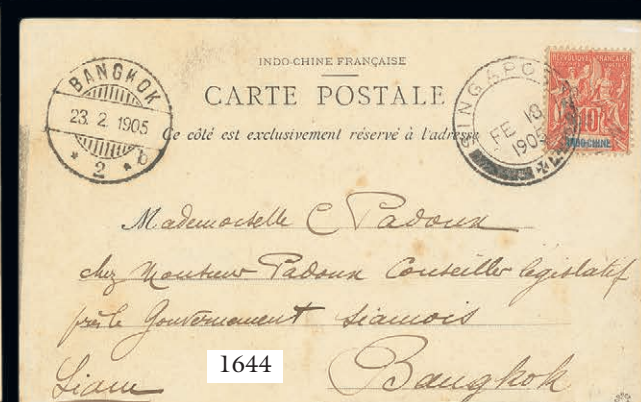 INDO-CHINE FRANÇAISE
CARTE POSTALE
Ce côté est exclusivement réservé à l'adresse
BANGKOK
23. 2. 1905
* 2 * b
SINGAPORE
FE 18
1905
REPUBLIQUE FRANÇAISE
10
INDO-CHINE
Mademoiselle C Padoux
chez Monsieur Padoux Conseiller legislatif
près le Gouvernement siamois
1644
Siam Bangkok